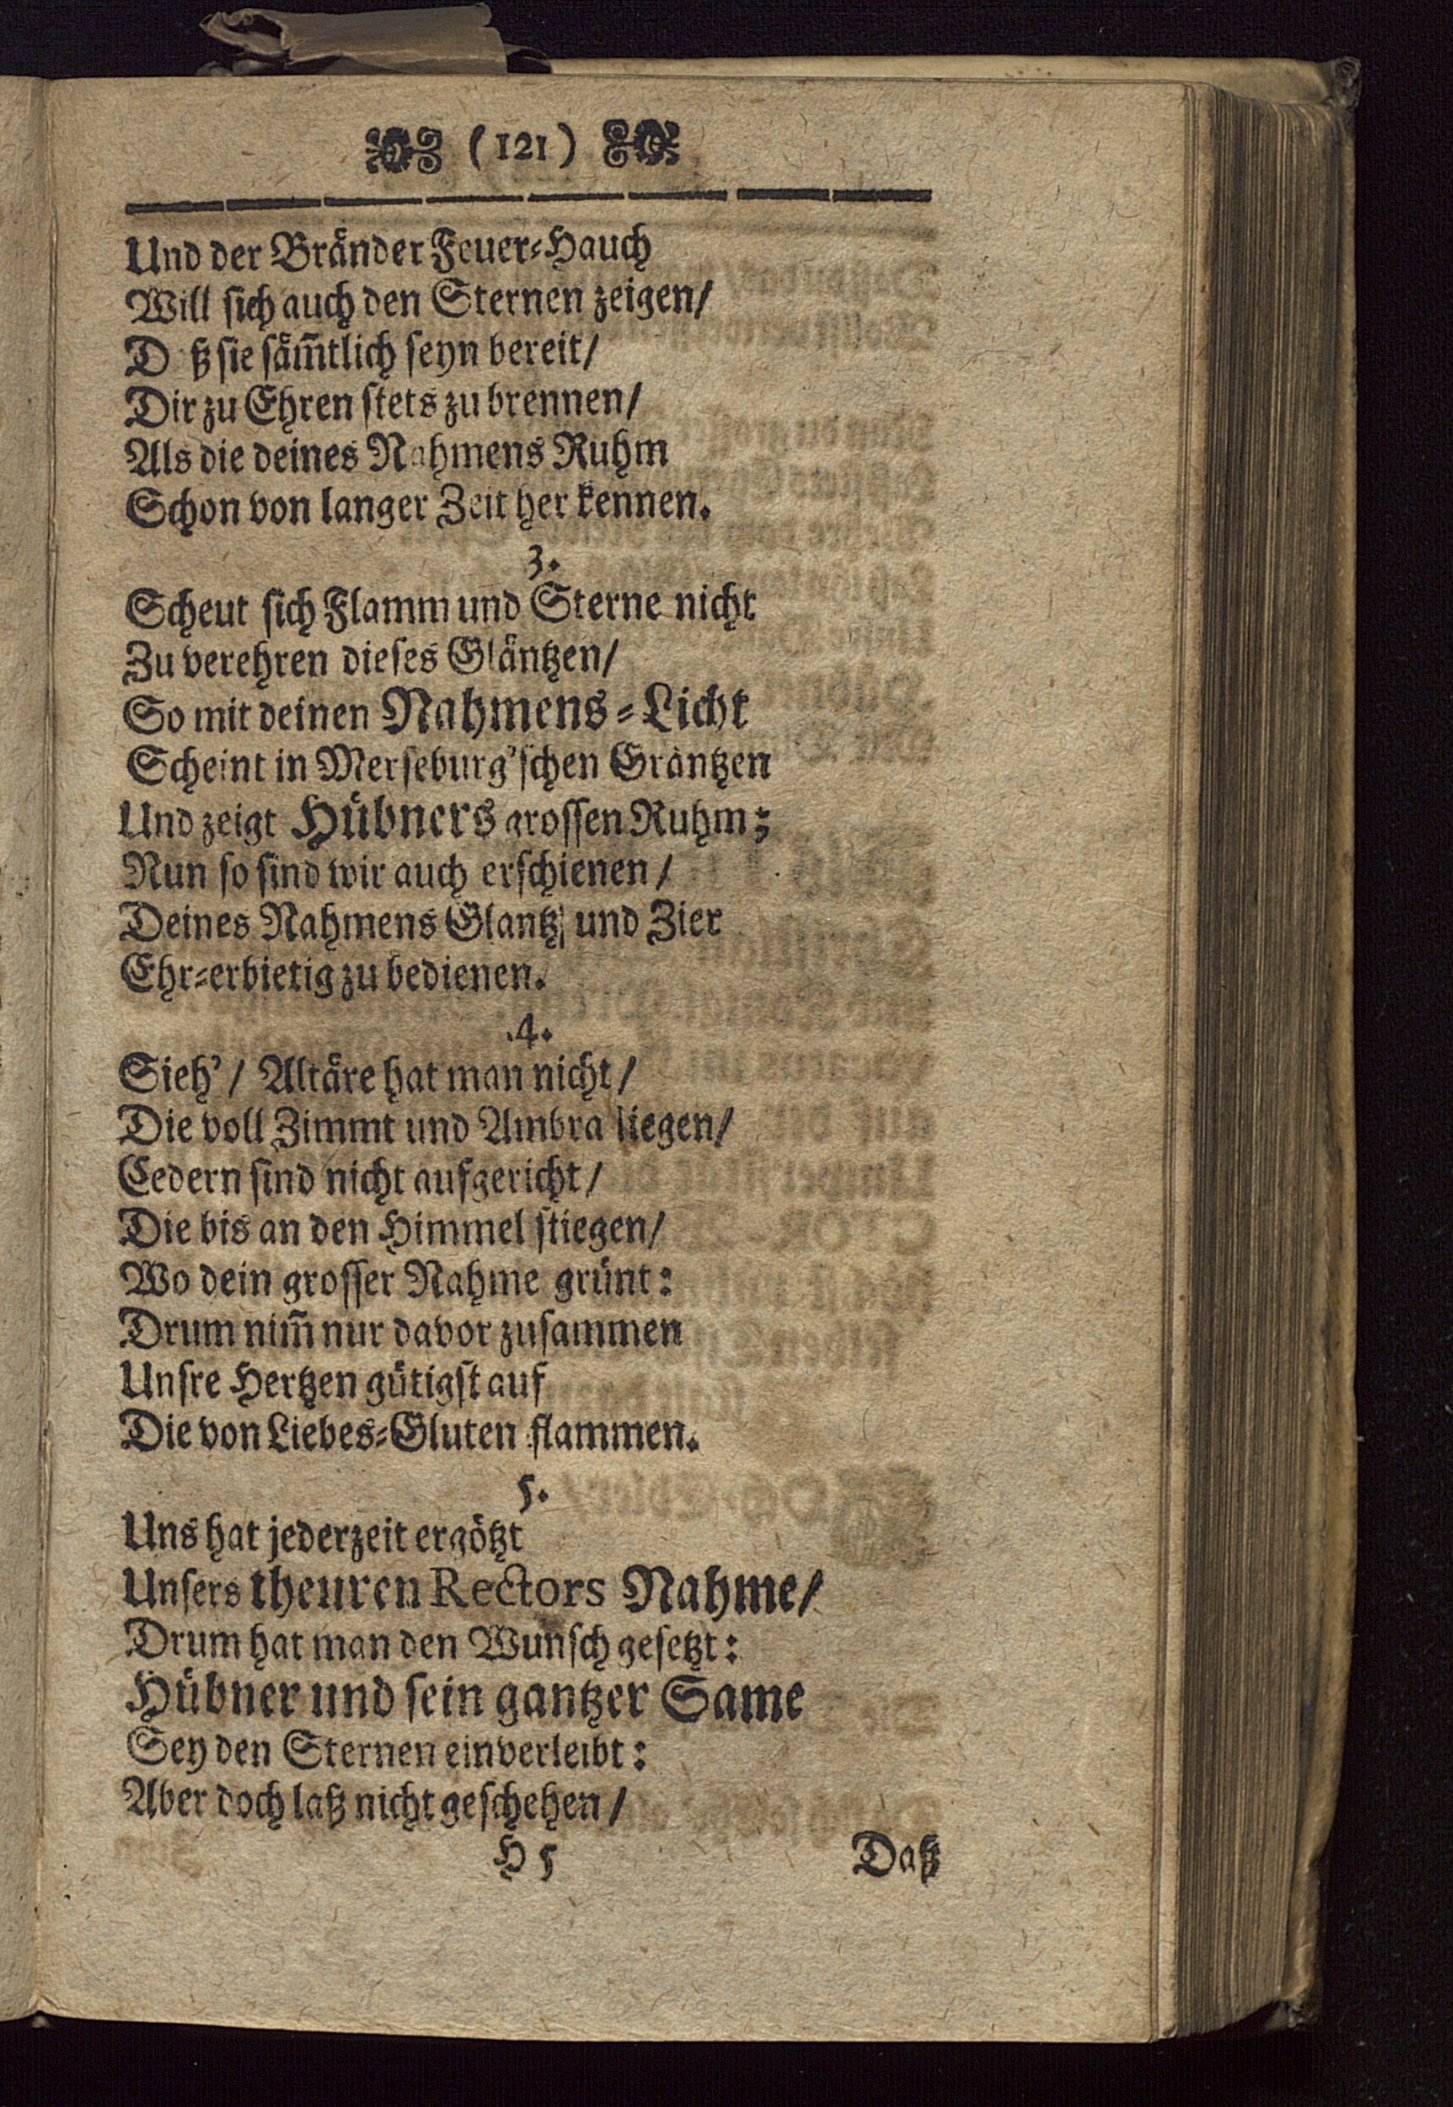 (121)
Und der Bränder Feuer-Hauch
Will sich auch den Sternen zeigen/
D ß sie säm̃tlich seyn bereit/
Dir zu Ehren stets zu brennen/
Als die deines Nahmens Ruhm
Schon von langer Zeit her kennen.
3.
Scheut sich Flamm und Sterne nicht
Zu verehren dieses Gläntzen/
So mit deinen Nahmens-Licht
Scheint in Merseburg'schen Gräntzen
Und zeigt Hübners grossen Ruhm;
Nun so sind wir auch erschienen/
Deines Nahmens Glantz und Zier
Ehr-erbietig zu bedienen.
4.
Sieh'/ Altäre hat man nicht/
Die voll Zimmt und Ambra liegen/
Cedern sind nicht aufgericht/
Die bis an den Himmel stiegen/
Wo dein grosser Nahme grünt:
Drum nim̃ nur davor zusammen
Unsre Hertzen gütigst auf
Die von Liebes-Gluten flammen.
5.
Uns hat jederzeit ergötzt
Unsers theuren Rectors Nahme/
Drum hat man den Wunsch gesetzt:
Hübner und sein gantzer Same
Sey den Sternen einverleibt:
Aber doch laß nicht geschehen/
H 5 Daß